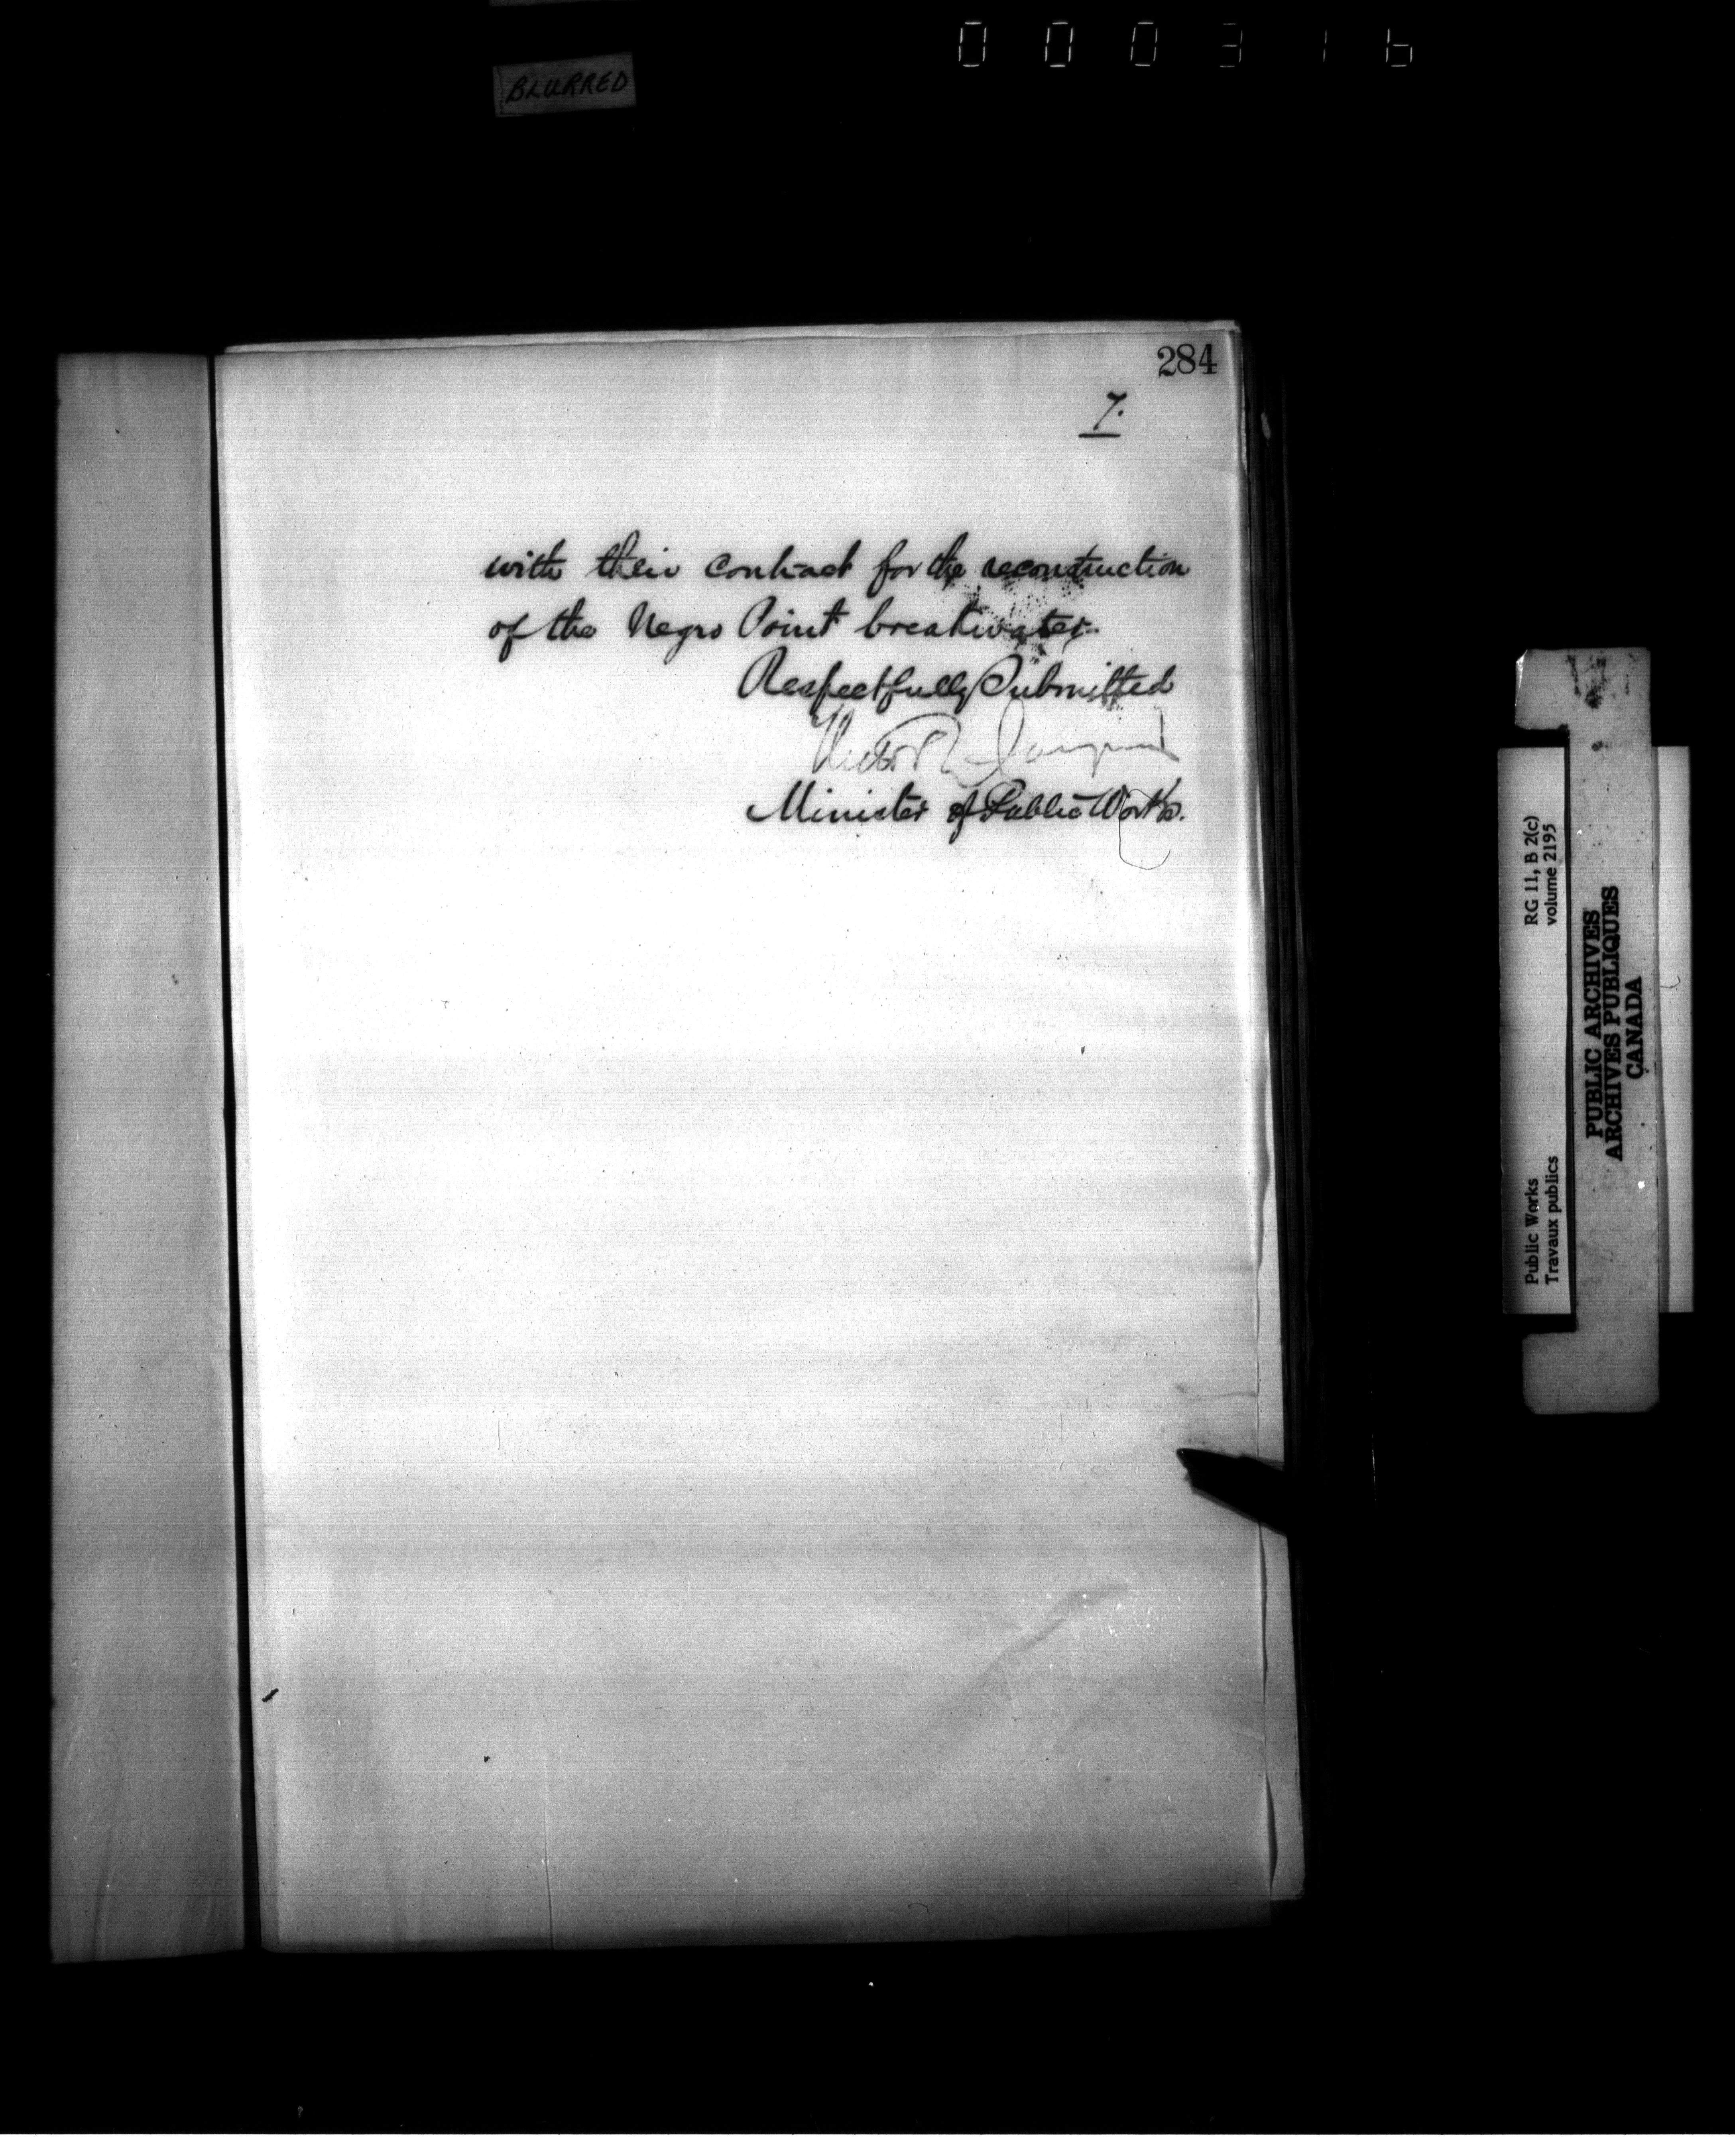 000316
BLURRED
284
7.
with their contract for the reconstruction
of the Negro Point breakwater.
Respectfully Submitted
Hector L. Langevin
Minister of Public Works.
RG 11, B 2(c)
volume 2195
Public Works
Travaux publics
PUBLIC ARCHIVES
ARCHIVES PUBLIQUES
CANADA